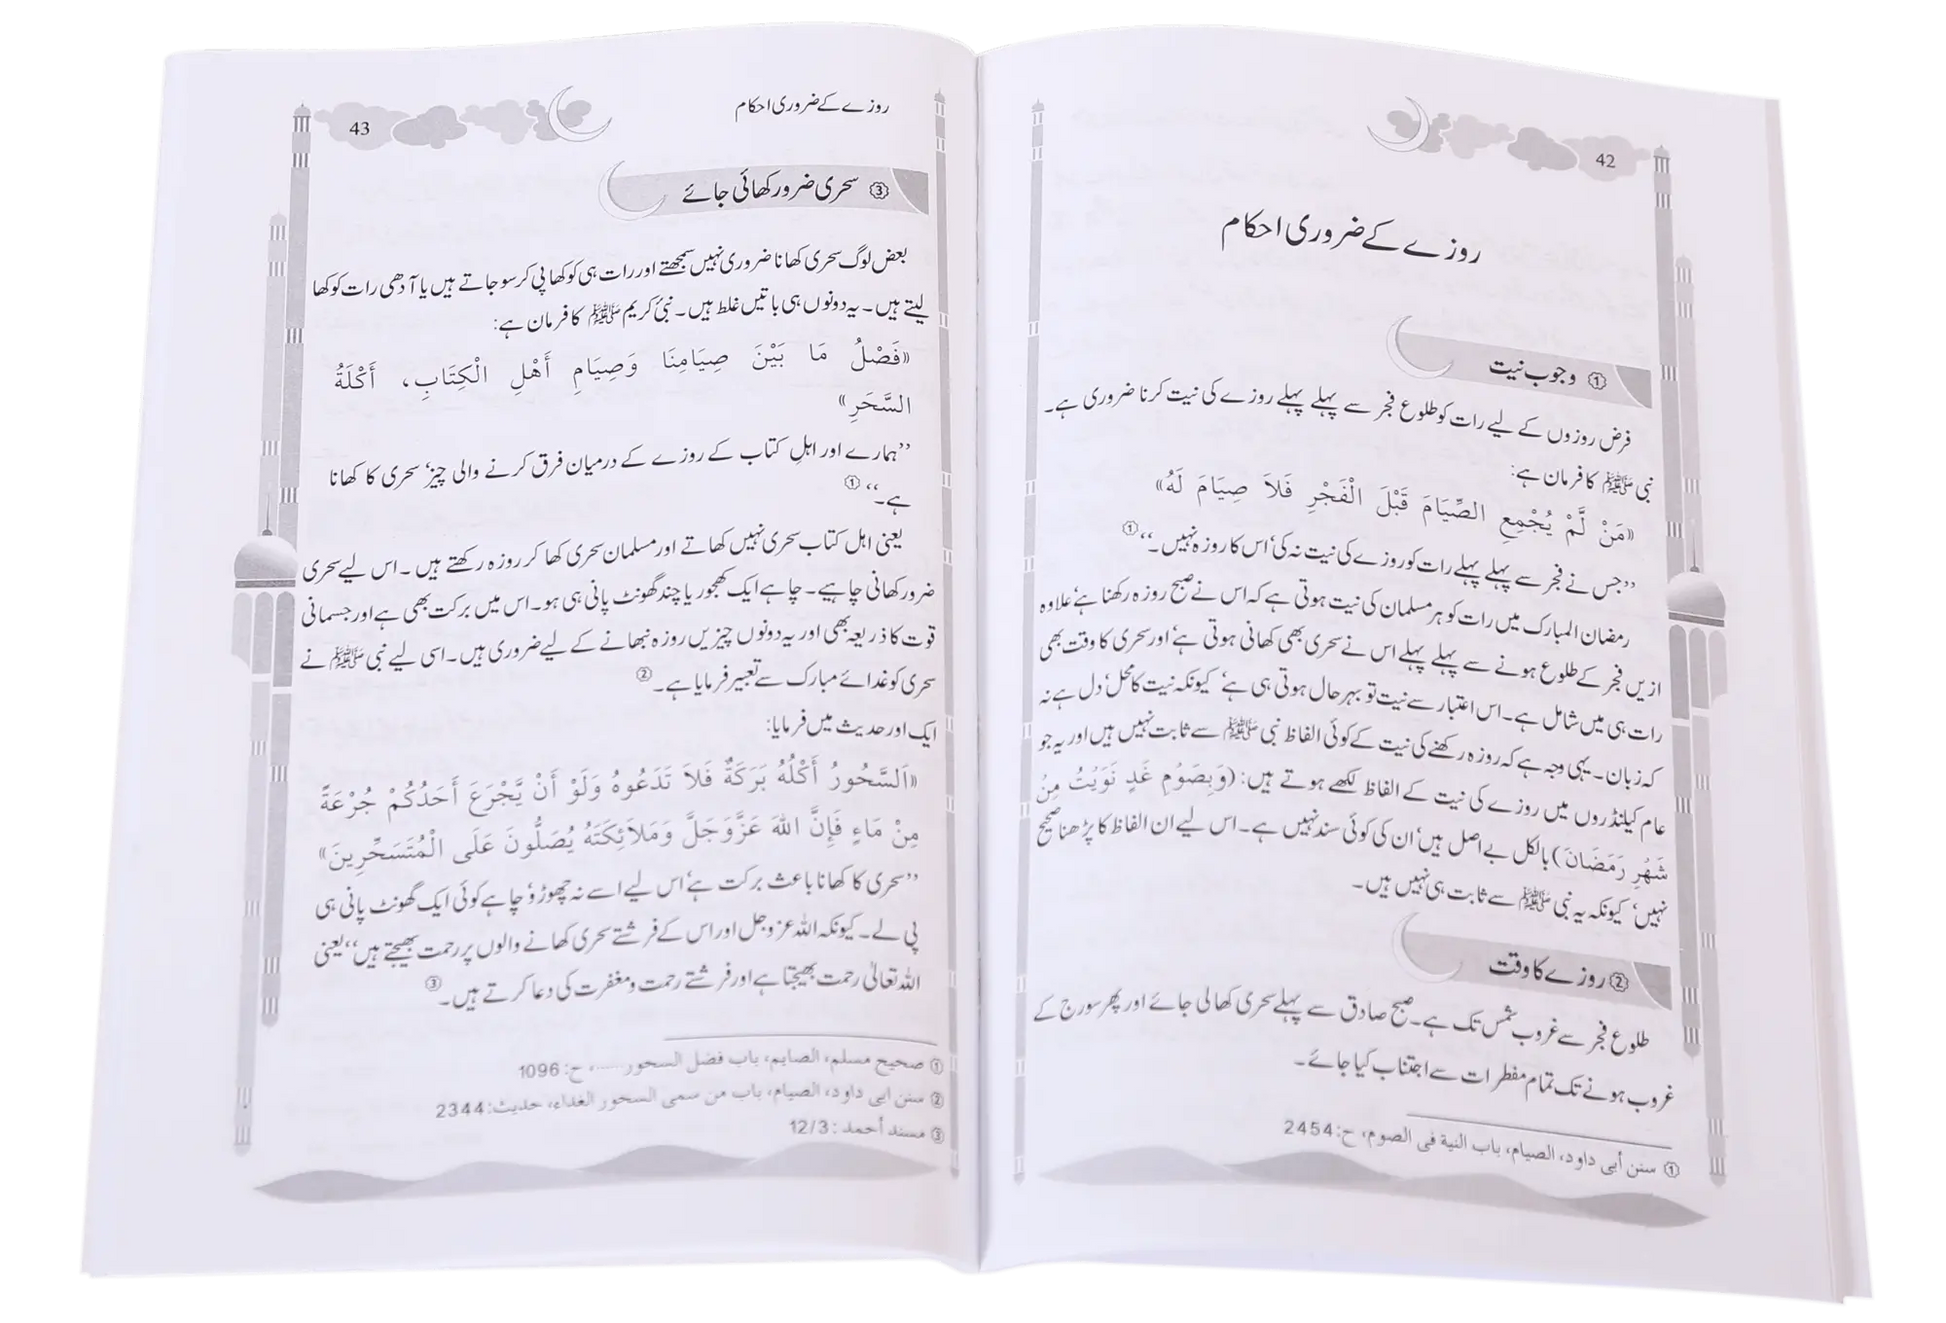 42
روزے کے ضروری احکام
① وجوب نیت
فرض روزوں کے لیے رات کو طلوع فجر سے پہلے پہلے روزے کی نیت کرنا ضروری ہے۔
نبی ﷺ کا فرمان ہے:
«مَنْ لَّمْ يُجْمِعِ الصِّيَامَ قَبْلَ الْفَجْرِ فَلَا صِيَامَ لَهُ»
’’جس نے فجر سے پہلے پہلے رات کو روزے کی نیت نہ کی‘ اس کا روزہ نہیں۔‘‘ ①
رمضان المبارک میں رات کو ہر مسلمان کی نیت ہوتی ہے کہ اس نے صبح روزہ رکھنا ہے‘ علاوہ
ازیں فجر کے طلوع ہونے سے پہلے پہلے اس نے سحری بھی کھانی ہوتی ہے‘ اور سحری کا وقت بھی
رات ہی میں شامل ہے۔ اس اعتبار سے نیت تو بہرحال ہوتی ہی ہے‘ کیونکہ نیت کا محل‘ دل ہے نہ
کہ زبان۔ یہی وجہ ہے کہ روزہ رکھنے کی نیت کے کوئی الفاظ نبی ﷺ سے ثابت نہیں ہیں اور یہ جو
عام کیلنڈروں میں روزے کی نیت کے الفاظ لکھے ہوتے ہیں: (وَبِصَوْمِ غَدٍ نَوَيْتُ مِنْ
شَهْرِ رَمَضَانَ) بالکل بے اصل ہیں‘ ان کی کوئی سند نہیں ہے۔ اس لیے ان الفاظ کا پڑھنا صحیح
نہیں‘ کیونکہ یہ نبی ﷺ سے ثابت ہی نہیں ہیں۔
② روزے کا وقت
طلوع فجر سے غروب شمس تک ہے۔ صبح صادق سے پہلے سحری کھا لی جائے اور پھر سورج کے
غروب ہونے تک تمام مفطرات سے اجتناب کیا جائے۔
① سنن أبی داود، الصیام، باب النیة فی الصوم، ح:2454
روزے کے ضروری احکام 43
③ سحری ضرور کھائی جائے
بعض لوگ سحری کھانا ضروری نہیں سمجھتے اور رات ہی کو کھا پی کر سو جاتے ہیں یا آدھی رات کو کھا
لیتے ہیں۔ یہ دونوں ہی باتیں غلط ہیں۔ نبیٔ کریم ﷺ کا فرمان ہے:
«فَصْلُ مَا بَيْنَ صِيَامِنَا وَصِيَامِ أَهْلِ الْكِتَابِ، أَكْلَةُ
السَّحَرِ»
’’ہمارے اور اہلِ کتاب کے روزے کے درمیان فرق کرنے والی چیز‘ سحری کا کھانا
ہے۔‘‘ ①
یعنی اہل کتاب سحری نہیں کھاتے اور مسلمان سحری کھا کر روزہ رکھتے ہیں۔ اس لیے سحری
ضرور کھانی چاہیے۔ چاہے ایک کھجور یا چند گھونٹ پانی ہی ہو۔ اس میں برکت بھی ہے اور جسمانی
قوت کا ذریعہ بھی اور یہ دونوں چیزیں روزہ نبھانے کے لیے ضروری ہیں۔ اسی لیے نبی ﷺ نے
سحری کو غدائے مبارک سے تعبیر فرمایا ہے۔ ②
ایک اور حدیث میں فرمایا:
«اَلسَّحُورُ أَكْلُهُ بَرَكَةٌ فَلَا تَدَعُوهُ وَلَوْ أَنْ يَّجْرَعَ أَحَدُكُمْ جُرْعَةً
مِنْ مَاءٍ فَإِنَّ اللهَ عَزَّوَجَلَّ وَمَلَائِكَتَهُ يُصَلُّونَ عَلَى الْمُتَسَحِّرِينَ»
’’سحری کا کھانا باعث برکت ہے‘ اس لیے اسے نہ چھوڑو‘ چاہے کوئی ایک گھونٹ پانی ہی
پی لے۔ کیونکہ اللہ عزوجل اور اس کے فرشتے سحری کھانے والوں پر رحمت بھیجتے ہیں‘‘ یعنی
اللہ تعالیٰ رحمت بھیجتا ہے اور فرشتے رحمت و مغفرت کی دعا کرتے ہیں۔ ③
① صحیح مسلم، الصایم، باب فضل السحور......، ح: 1096
② سنن ابی داود، الصیام، باب من سمی السحور الغداء، حدیث: 2344
③ مسند أحمد: 12/3